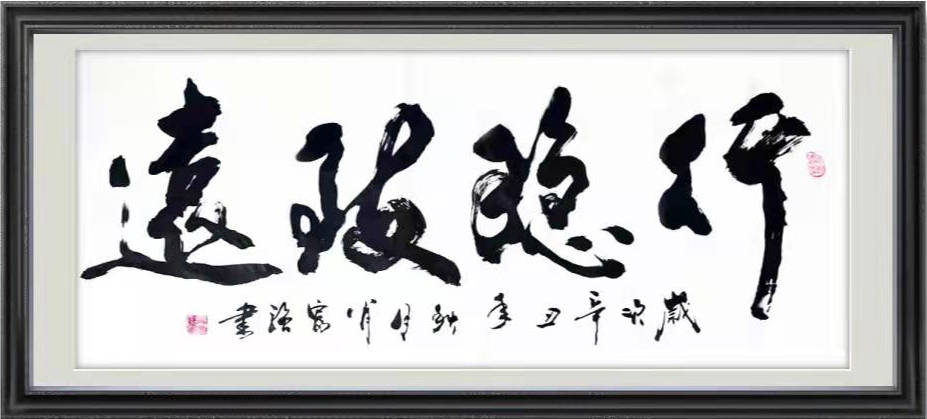 行稳致遠
歲次辛丑年秋月肖富洪書